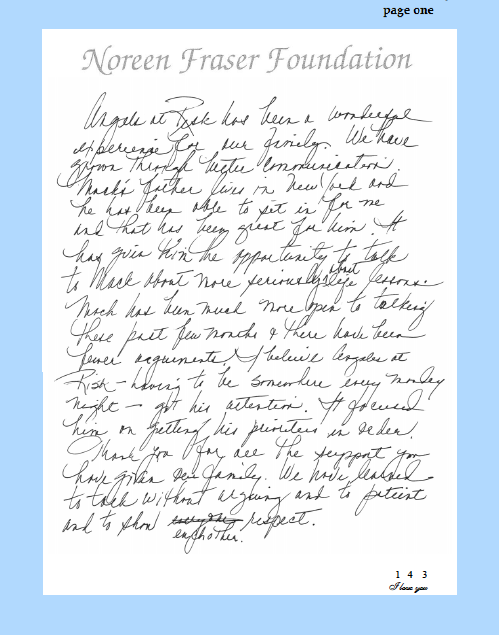 page one
Noreen Fraser Foundation
Angels at Risk has been a wonderful
experience for our family. We have
grown through better communication.
Mack's father lives in New York and
he has been able to sit in for me
and that has been great for him. It
has given him the opportunity to talk
to Mack about more seriously about life lessons.
Mack has been much more open to talking
these past few months & there have been
fewer arguements. I believe Angels at
Risk - having to be somewhere every monday
night - got his attention. It focused
him on getting his priorities in order.
Thank you for all the support you
have given our family. We have learned
to talk without arguing and to patient
and to show respect.
eachother.
1 4 3
I love you